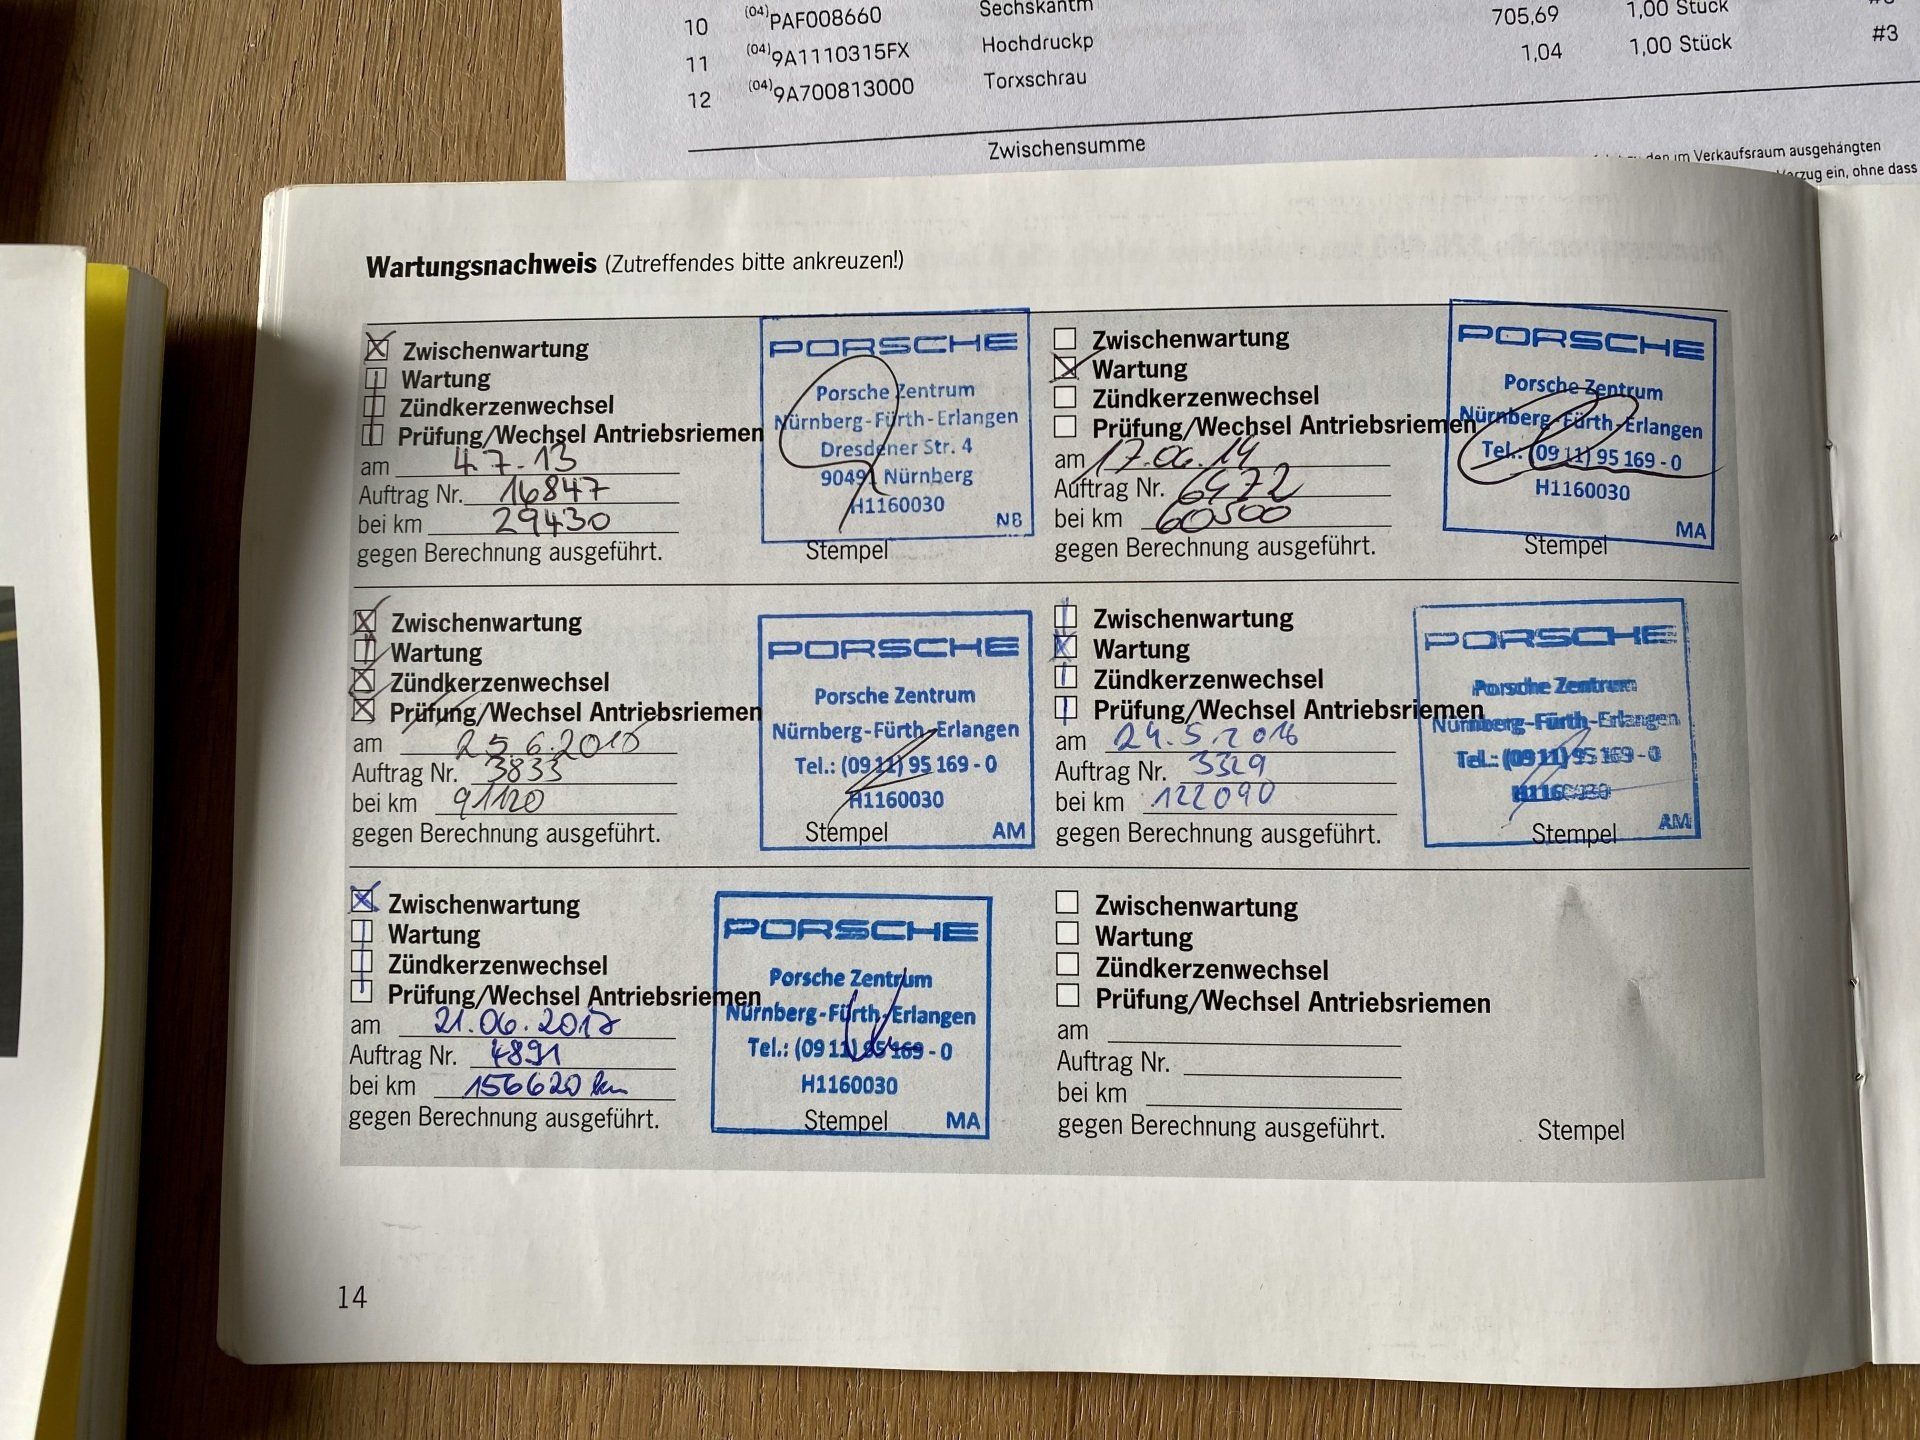 10 (04)PAF008660 Sechskantm 705,69 1,00 Stück
11 (04)9A1110315FX Hochdruckp 1,04 1,00 Stück #3
12 (04)9A700813000 Torxschrau
Zwischensumme
den im Verkaufsraum ausgehängten
ein, ohne dass
Wartungsnachweis (Zutreffendes bitte ankreuzen!)
Zwischenwartung
Wartung
Zündkerzenwechsel
Prüfung/Wechsel Antriebsriemen
am 4.7.13
Auftrag Nr. 16847
bei km 29430
gegen Berechnung ausgeführt.
PORSCHE
Porsche Zentrum
Nürnberg-Fürth-Erlangen
Dresdener Str. 4
90491 Nürnberg
H1160030
N8
Stempel
Zwischenwartung
Wartung
Zündkerzenwechsel
Prüfung/Wechsel Antriebsriemen
am 17.06.14
Auftrag Nr. 6472
bei km 60500
gegen Berechnung ausgeführt.
PORSCHE
Porsche Zentrum
Nürnberg-Fürth-Erlangen
Tel.: (09 11) 95 169 - 0
H1160030
MA
Stempel
Zwischenwartung
Wartung
Zündkerzenwechsel
Prüfung/Wechsel Antriebsriemen
am
Auftrag Nr. 3833
bei km 91120
gegen Berechnung ausgeführt.
PORSCHE
Porsche Zentrum
Nürnberg-Fürth-Erlangen
Tel.: (09 11) 95 169 - 0
H1160030
AM
Stempel
Zwischenwartung
Wartung
Zündkerzenwechsel
Prüfung/Wechsel Antriebsriemen
am 24.5.2016
Auftrag Nr. 3329
bei km 122090
gegen Berechnung ausgeführt.
PORSCHE
Porsche Zentrum
Nürnberg-Fürth-Erlangen
Tel.: (09 11) 95 169 - 0
H1160030
AM
Stempel
Zwischenwartung
Wartung
Zündkerzenwechsel
Prüfung/Wechsel Antriebsriemen
am 21.06.2017
Auftrag Nr. 4891
bei km 156620 km
gegen Berechnung ausgeführt.
PORSCHE
Porsche Zentrum
Nürnberg-Fürth-Erlangen
Tel.: (09 11) 95 169 - 0
H1160030
MA
Stempel
Zwischenwartung
Wartung
Zündkerzenwechsel
Prüfung/Wechsel Antriebsriemen
am
Auftrag Nr.
bei km
gegen Berechnung ausgeführt.
Stempel
14